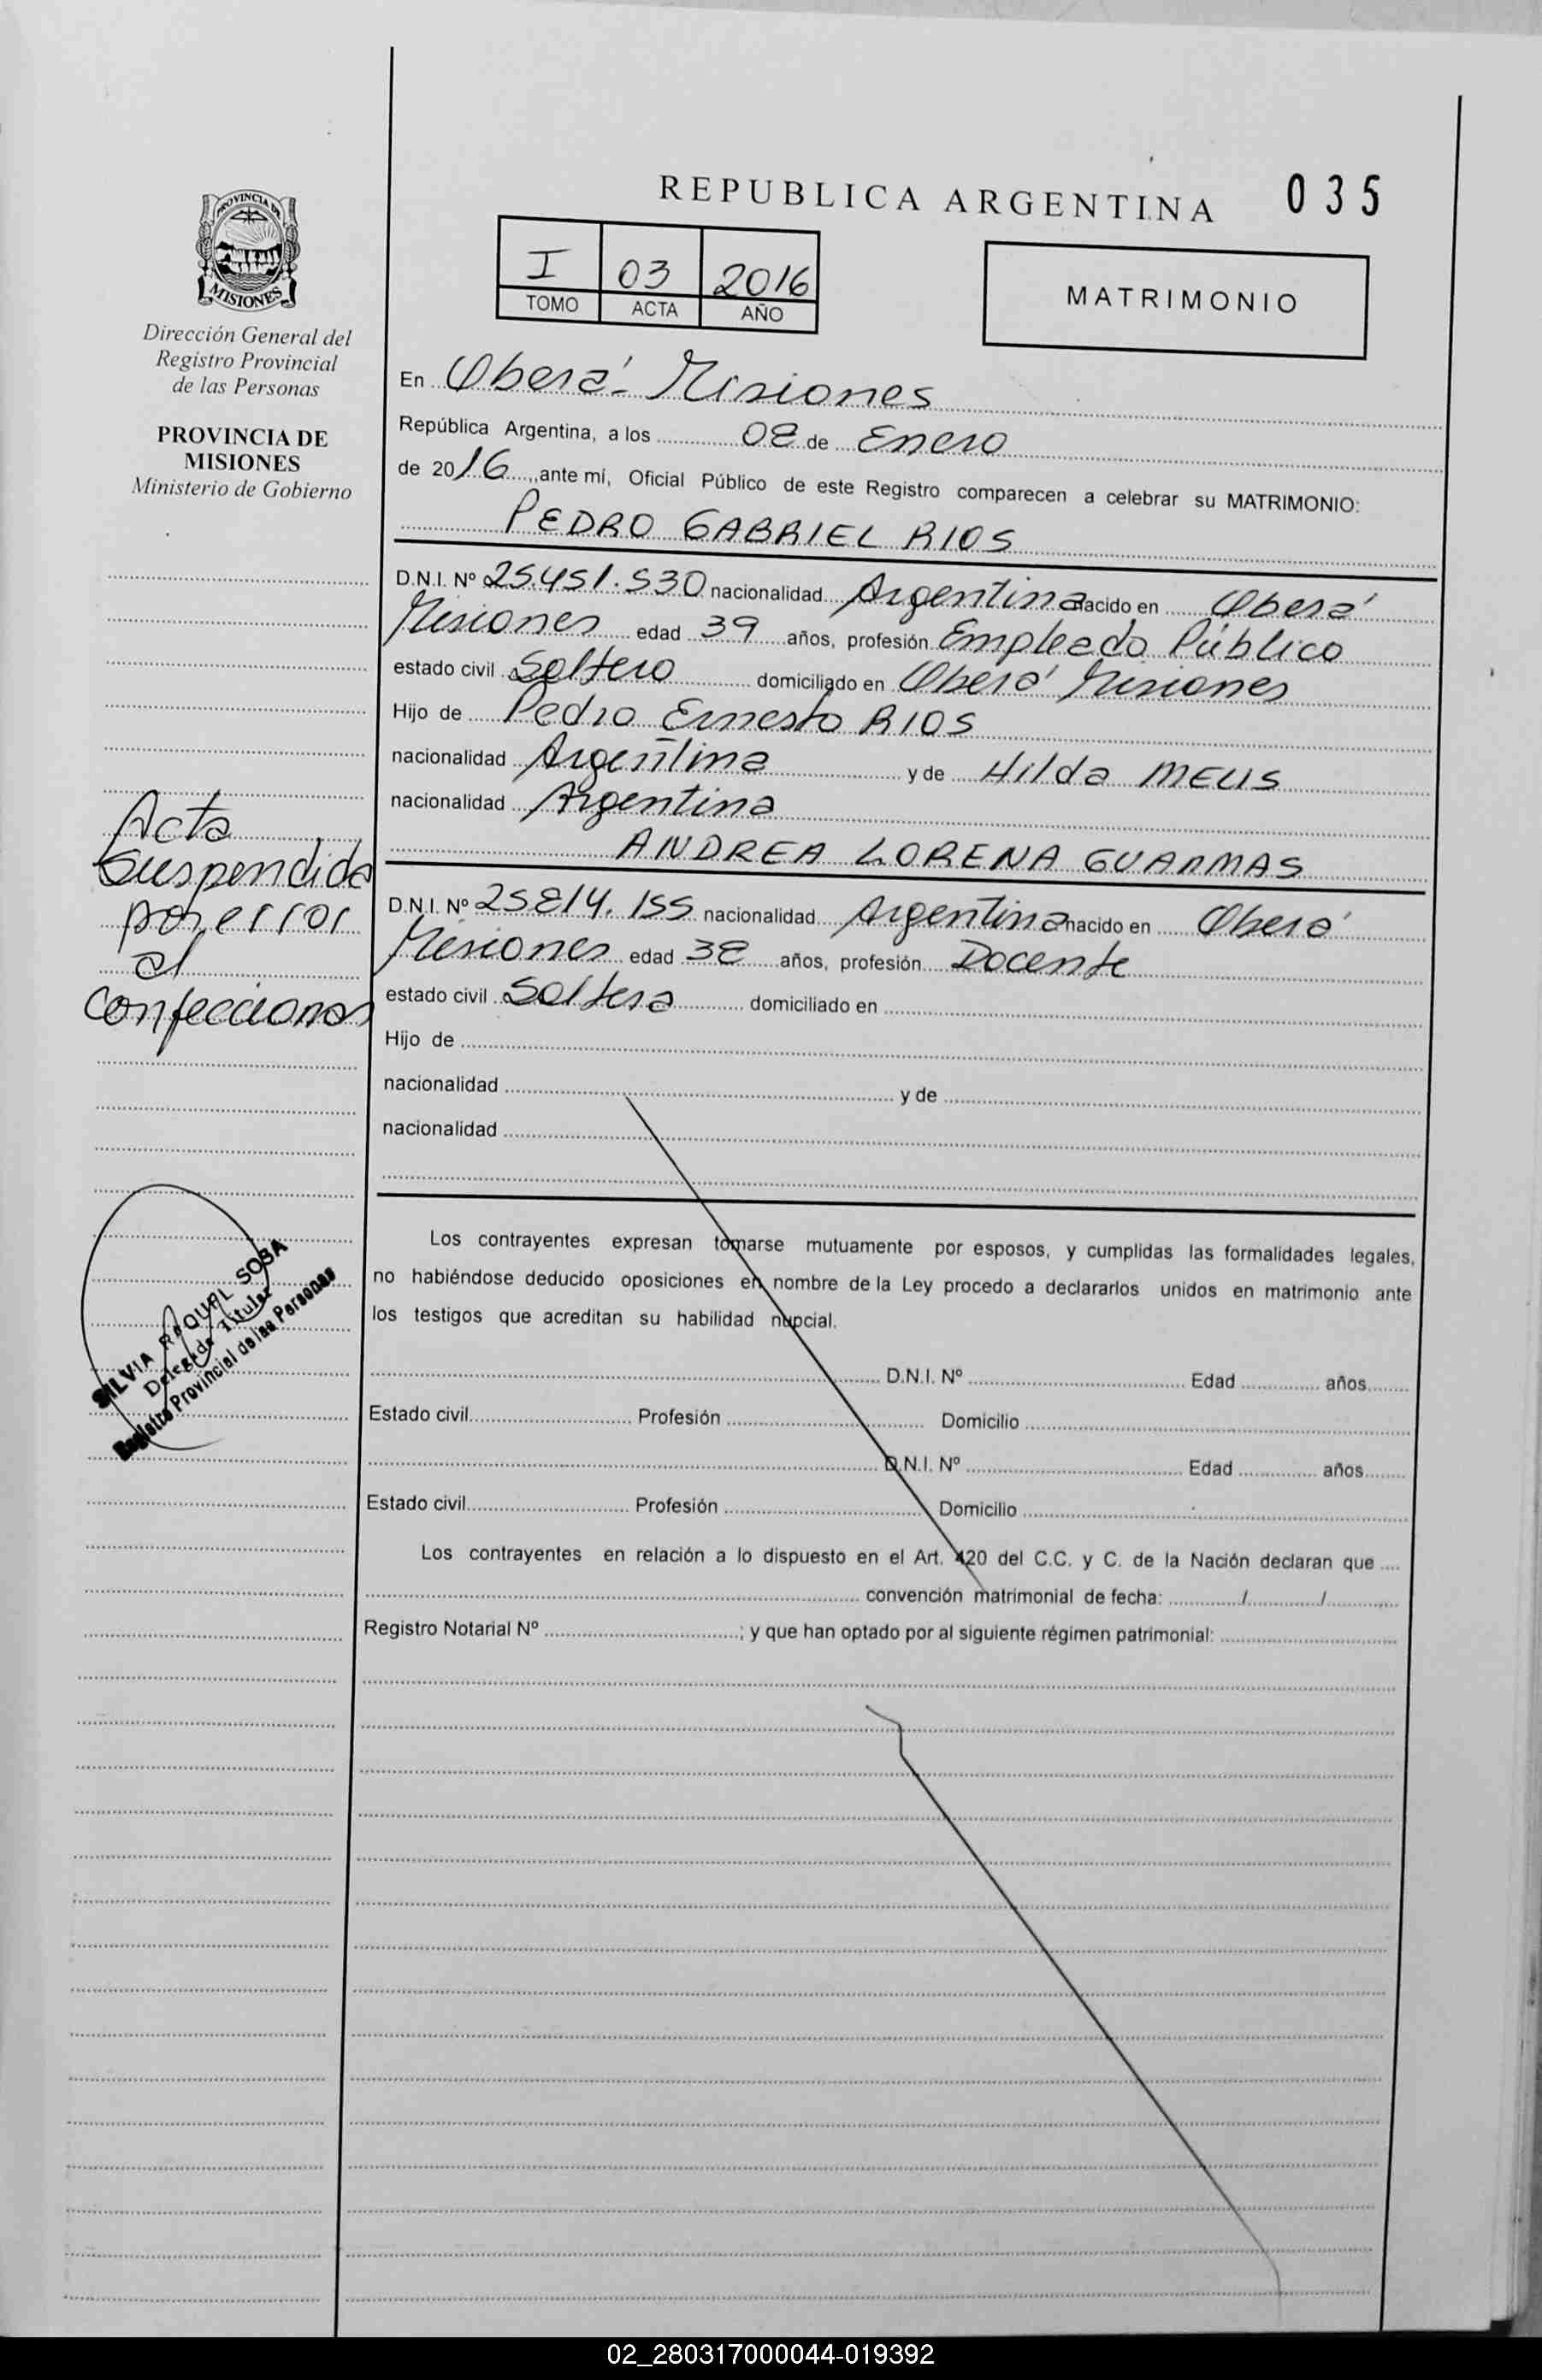 REPUBLICA ARGENTINA 035
PROVINCIA DE
MISIONES
Dirección General del
Registro Provincial
de las Personas
PROVINCIA DE
MISIONES
Ministerio de Gobierno
I 03 2016
TOMO ACTA AÑO
MATRIMONIO
En Oberá - Misiones
República Argentina, a los 08 de Enero
de 2016, ante mí, Oficial Público de este Registro comparecen a celebrar su MATRIMONIO:
PEDRO GABRIEL RIOS
D.N.I. Nº 25.451.530 nacionalidad Argentina nacido en Oberá
Misiones edad 39 años, profesión Empleado Público
estado civil Soltero domiciliado en Oberá Misiones
Hijo de Pedro Ernesto RIOS
nacionalidad Argentina y de Hilda MELIS
nacionalidad Argentina
ANDREA LORENA GUARMAS
D.N.I. Nº 25814.155 nacionalidad Argentina nacido en Oberá
Misiones edad 38 años, profesión Docente
estado civil Soltera domiciliado en
Hijo de
nacionalidad y de
nacionalidad
Acta
Suspendida
por error
al
confeccionar
SILVIA RAQUEL SOSA
Delegada Titular
Registro Provincial de las Personas
Los contrayentes expresan tomarse mutuamente por esposos, y cumplidas las formalidades legales,
no habiéndose deducido oposiciones en nombre de la Ley procedo a declararlos unidos en matrimonio ante
los testigos que acreditan su habilidad nupcial.
D.N.I. Nº Edad años
Estado civil Profesión Domicilio
D.N.I. Nº Edad años
Estado civil Profesión Domicilio
Los contrayentes en relación a lo dispuesto en el Art. 420 del C.C. y C. de la Nación declaran que
convención matrimonial de fecha: / /
Registro Notarial Nº ; y que han optado por al siguiente régimen patrimonial:
02_280317000044-019392